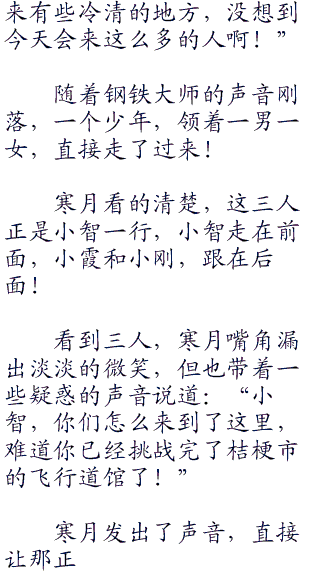 来有些冷清的地方，没想到
今天会来这么多的人啊！”
随着钢铁大师的声音刚
落，一个少年，领着一男一
女，直接走了过来！
寒月看的清楚，这三人
正是小智一行，小智走在前
面，小霞和小刚，跟在后
面！
看到三人，寒月嘴角漏
出淡淡的微笑，但也带着一
些疑惑的声音说道：“小
智，你们怎么来到了这里，
难道你已经挑战完了桔梗市
的飞行道馆了！”
寒月发出了声音，直接
让那正